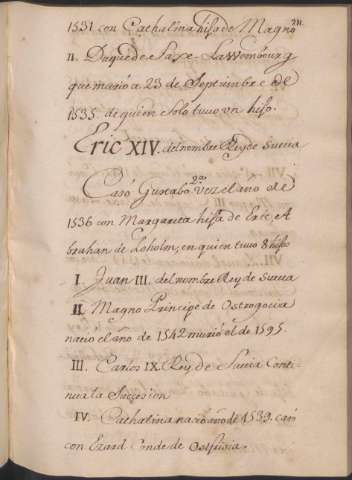 1531 con Cathalina hija de Magno
II. Duque de Saxe-Lawembourg
que murió a 23 de Septiembre de
1535 de quien solo tuuo vn hijo.
Eric XIV. del nombre Rey de Suecia
Casó Gustabo 2ª vez el año de
1536 con Margarita hija de Eric A
brahan de Loholm, en quien tuuo 8 hijos
I. Juan III. del nombre Rey de Suecia
II. Magno Principe de Ostrogocia
nacio el año de 1542 murió el de 1595.
III. Carlos IX. Rey de Suecia Conti-
nua la Succesion
IV. Cathalina nacio año de 1539. casó
con Ezard Conde de Ostfrisia.